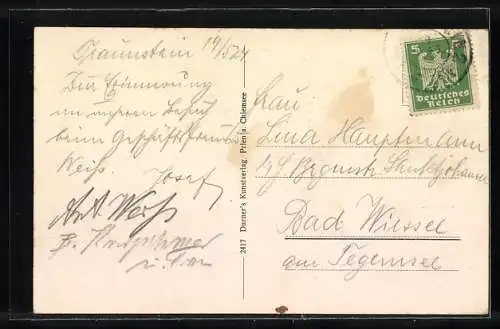 Traunstein 19/5 24
Zur Erinnerung
an unseren Besuch
beim Geschäftsfreund
Weiß.
Josef
Ant. Weiß
u. Frau
2417 Durner's Kunstverlag, Prien a. Chiemsee
5 5
Deutsches
Reich
Frau
Lina Hauptmann
Bad Wiessel
am Tegernsee